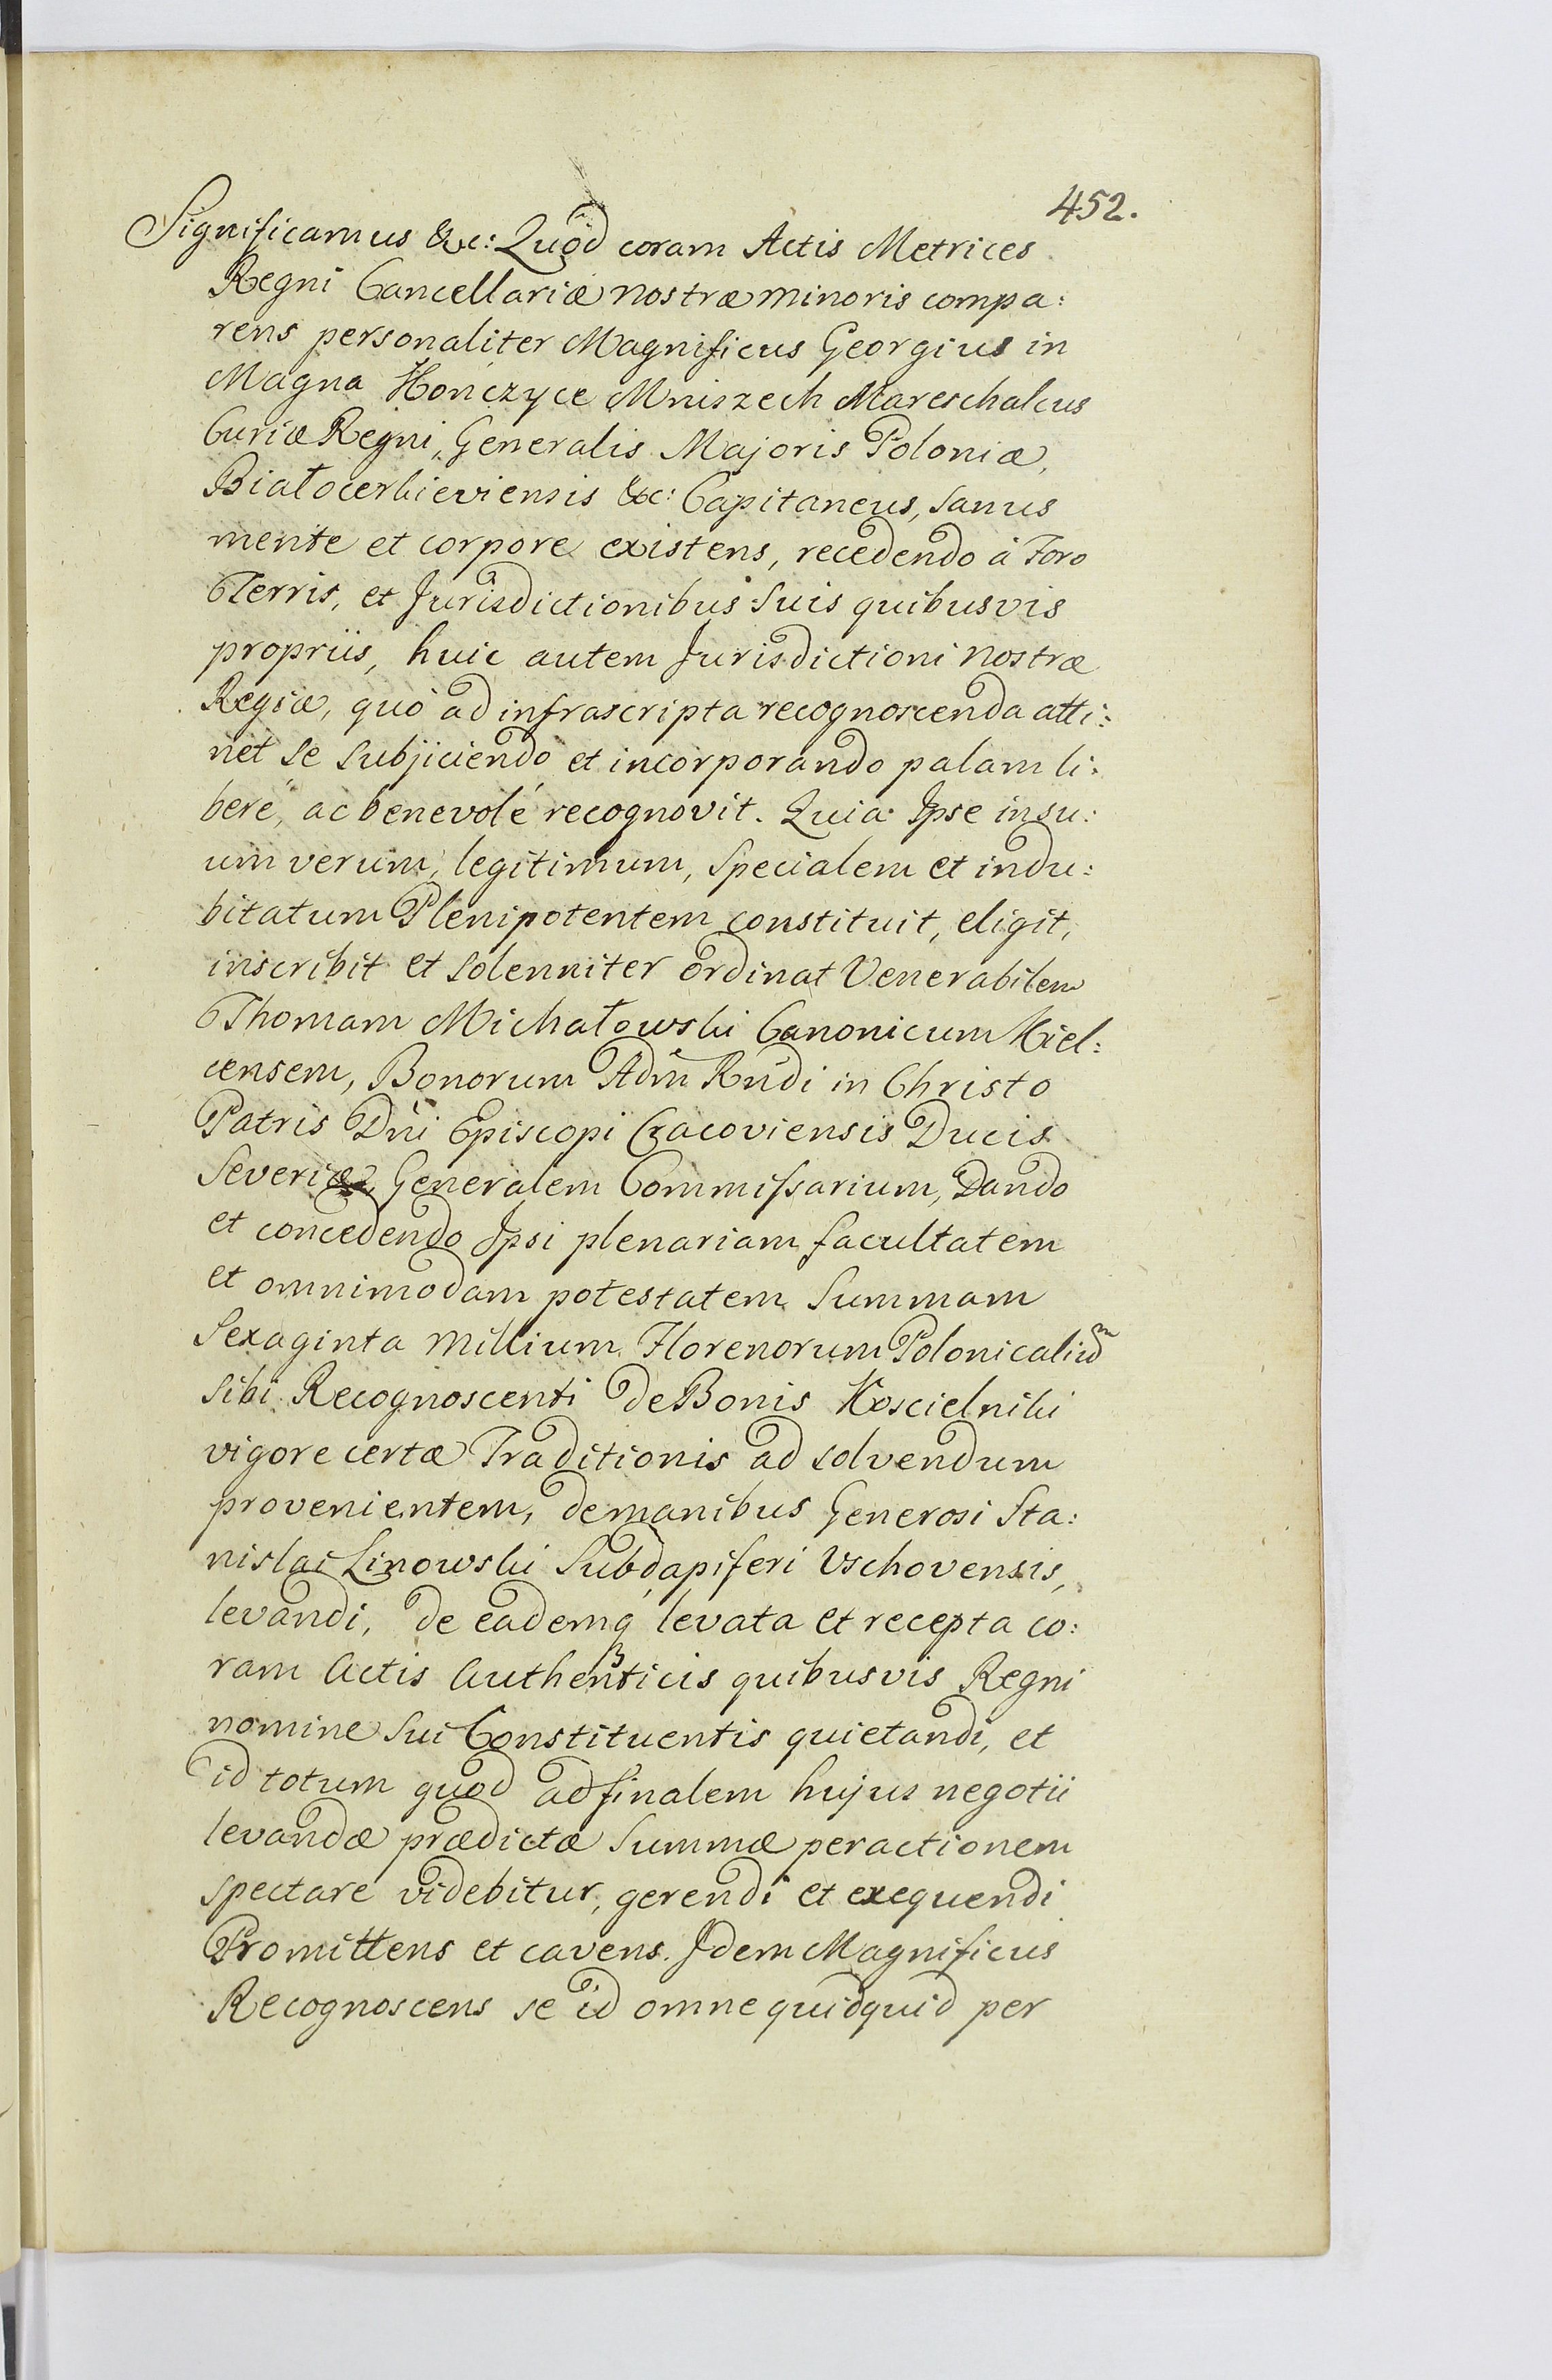 452.
Significamus &c: Quòd coram Actis Metrices
Regni Cancellariæ nostræ minoris compa:
rens personaliter Magnificus Georgius in
Magna Kończyce Mniszech Mareschalcus
Curiæ Regni, Generalis Majoris Poloniæ,
Białocerkieviensis &c: Capitaneus, sanus
mente et corpore existens, recedendo à Foro
Terris, et Jurisdictionibus suis quibusvis
propriis, huic autem Jurisdictioni nostræ
Regiæ, quò ad infrascripta recognoscenda atti:
net se subjiciendo et incorporando palam li:
berè, ac benevolé recognovit. Quia Ipse in su:
um verum, legitimum, specialem et indu:
bitatum Plenipotentem constituit, eligit,
inscribit et solenniter ordinat Venerabilem
Thomam Michałowski Canonicum Kiel:
censem, Bonorum Adm̃ Rñdi in Christo
Patris Dñi Episcopi Cracoviensis Ducis
Severiæ, Generalem Commissarium, Dando
et concedendo Ipsi plenariam facultatem
et omnimodam potestatem summam
Sexaginta Millium Florenorum Polonicaliũ
sibi Recognoscenti de Bonis Koscielniki
vigore certæ Traditionis ad solvendum
provenientem, de manibus Generosi Sta:
nislai Linowski Subdapiferi Vschovensis,
levandi, de eademq́ levata et recepta co:
ram Actis Authenticis quibusvis Regni
nomine sui Constituentis quietandi, et
id totum quod ad finalem hujus negotii
levandæ prædictæ Summæ peractionem
spectare videbitur, gerendi et exequendi
Promittens et cavens. Idem Magnificus
Recognoscens se id omne quidquid per